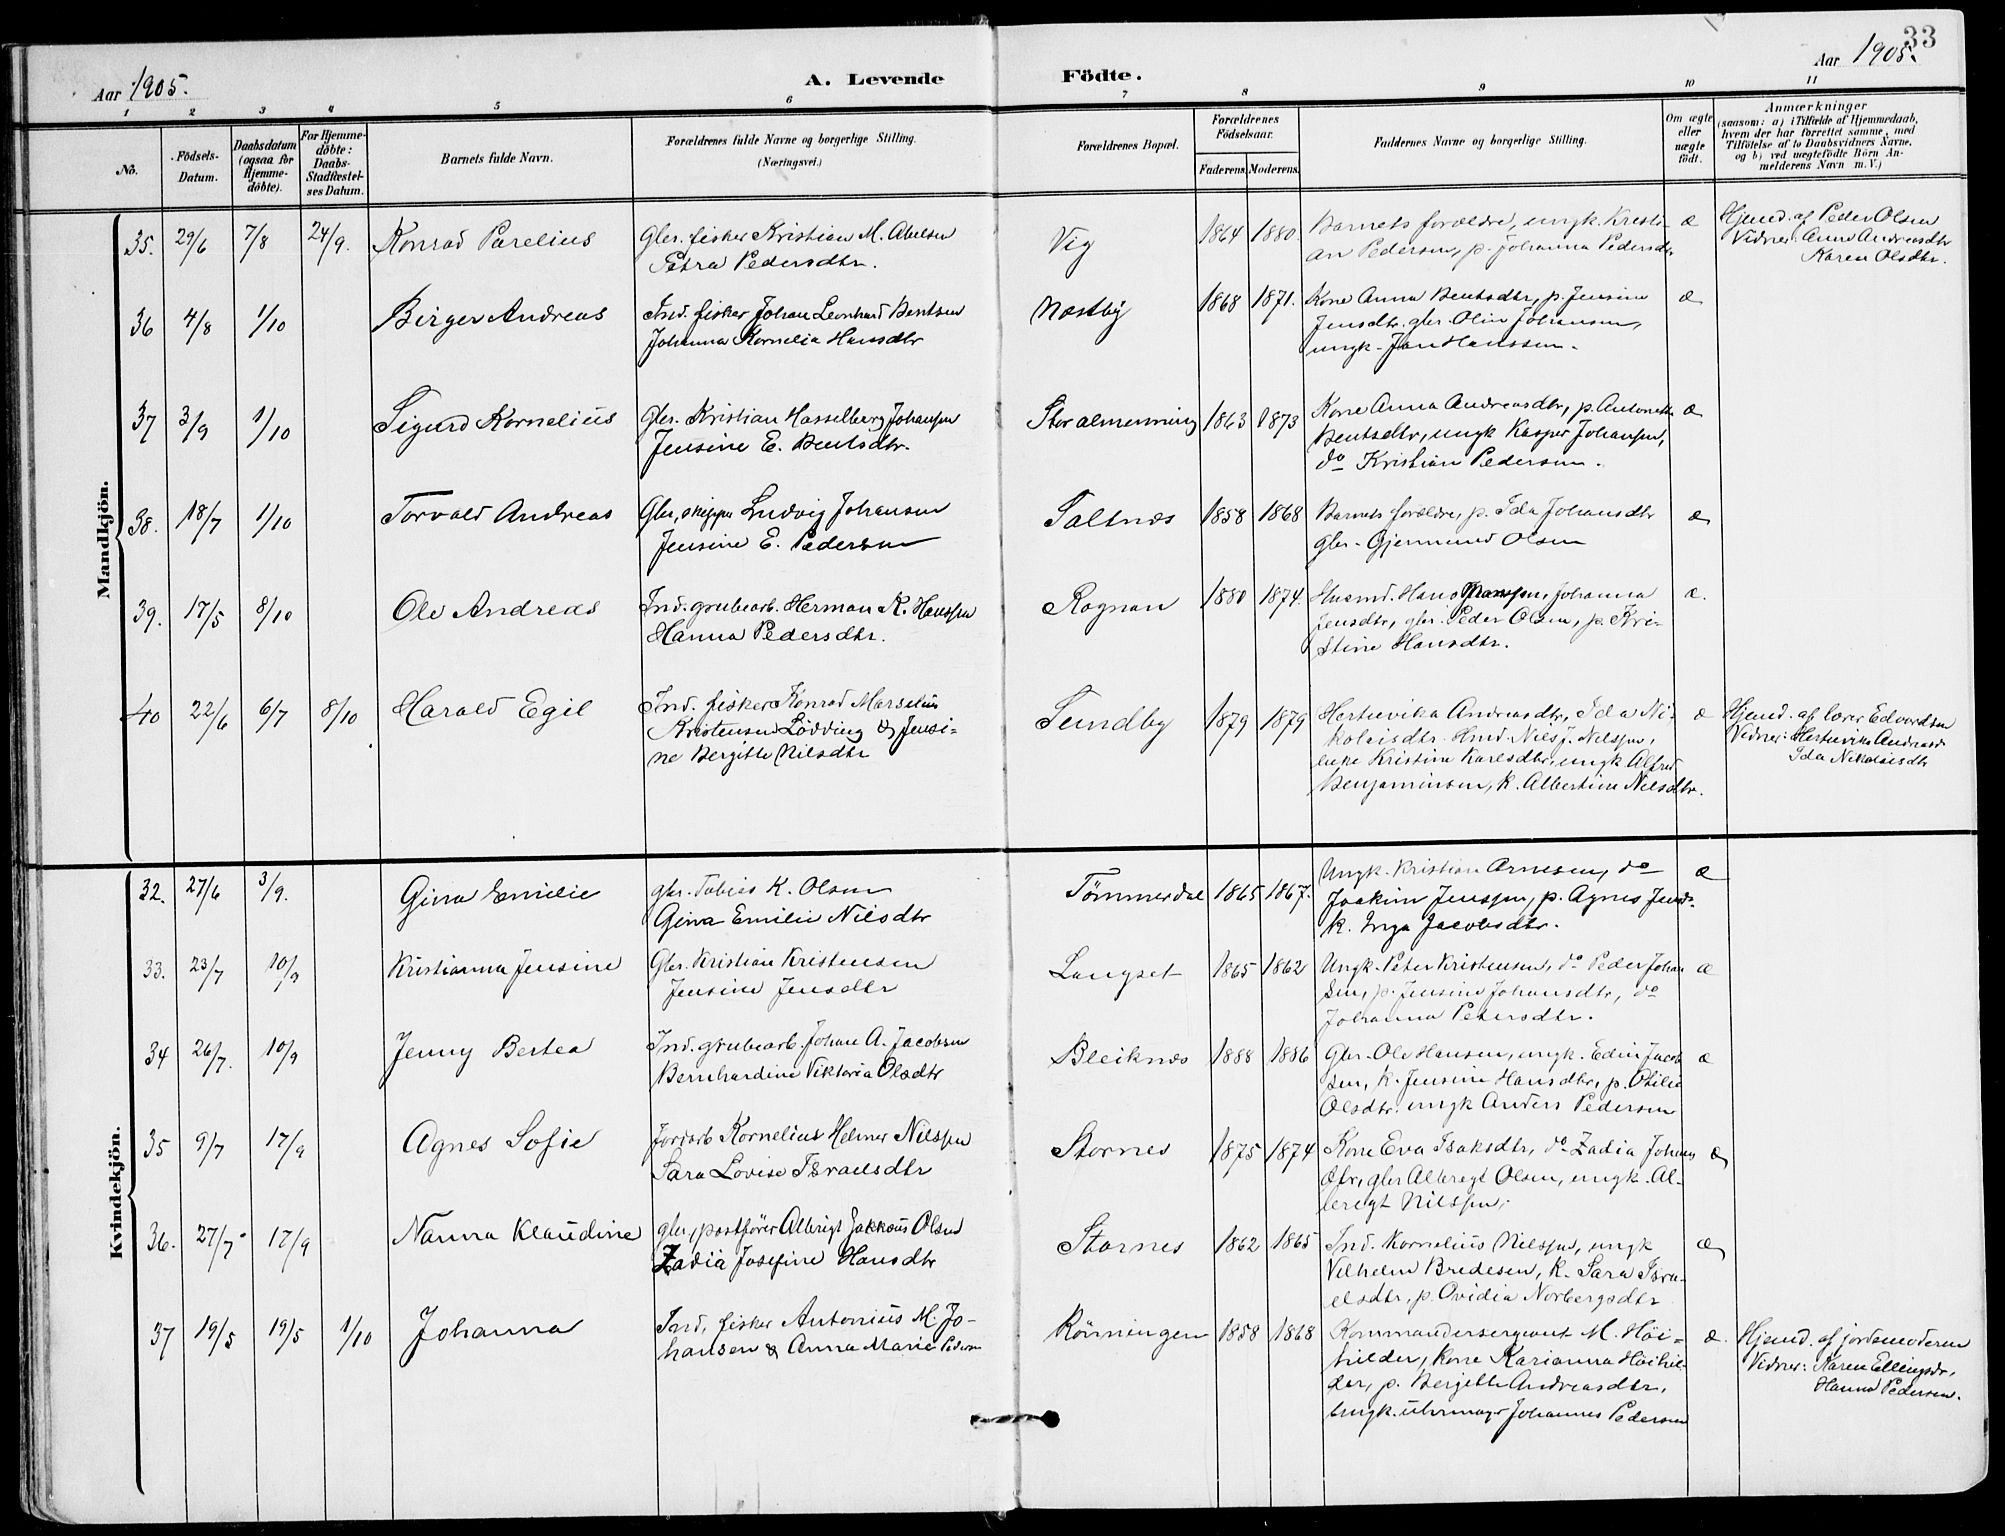 33
Aar 1905.
A. Levende
Födte.
Aar 1905.
1 2 3 4 5 6 7 8 9 10 11
No.
Födsels-Datum.
Daabsdatum (ogsaa for Hjemme-döbte).
For Hjemme-döbte: Daabs-Stadfæstel-ses Datum.
Barnets fulde Navn.
Forældrenes fulde Navne og borgerlige Stilling.
(Næringsvei.)
Forældrenes Bopæl.
Forældrenes Födselsaar.
Faderens. Moderens.
Faddernes Navne og borgerlige Stilling.
Om ægte eller uægte födt.
Anmærkninger
(saasom: a) i Tilfælde af Hjemmedaab,
hvem der har forrettet samme, med
Tilföielse af to Daabsvidners Navne,
og b) ved uægtefödte Börn An-
melderens Navn m. V.)
Mandkjön.
35. 29/6 7/8 24/9. Konrad Parelius
Gbr. fisker Kristian M. Abelsen
Petra Pedersdtr.
Vig 1864 1880.
Barnets forældre, ungk. Kristi-
an Pedersen, p. Johanna Pedersdtr
æ
Hjemd. af Peder Olsen
Vidner: Anne Andreasdtr
Karen Olsdtr.
36 4/8 1/10 Birger Andreas
Ind. fisker Johan Leonhard Bentsen
Johanna Kornelia Hansdtr
Næstby 1868 1871.
Kone Anna Bentsdtr, p. Jensine
Jensdtr, gbr. Olin Johansen,
ungk. Jan Hanssen.
æ
37 3/9 1/10 Sigurd Kornelius
Gbr. Kristian Hasselberg Johansen
Jensine E. Bentsdtr.
Storalmenning 1863 1873
Kone Anna Andreasdtr, p. Antonette
Bentsdtr, ungk Kasper Johansen,
do Kristian Pedersen.
æ
38. 18/7 1/10 Torvald Andreas
Gbr, skipper Ludvig Johansen
Jensine E. Pedersen
Saltnes 1858 1868
Barnets forældre, p. Ida Johansdtr
gbr. Gjermund Olsen
æ
39. 17/5 8/10 Ole Andreas
Ind. grubearb. Herman K. Hanssen
Hanna Pedersdtr.
Rognan 1880 1874.
Husmd. Hans Johanna
Jensdtr, gbr. Peder Olsen, p. Kri-
stine Hansdtr.
æ.
40 22/6 6/7 8/10 Harald Egil
Ind. fisker Konrad Marselius
Kristensen Lödding & Jensi-
ne Bergitte Nilsdtr
Sundby 1879 1879
Hertsevika Andreasdtr, Ida Ni-
kolaisdtr. Hmd. Nils J. Nilssen,
enke Kristine Karlsdtr, ungk Alfred
Benjaminsen, k. Albertine Nilsdtr.
æ
Hjemd. af lærer Edvardsen
Vidner: Hertsevika Andreasd
Ida Nikolaisdtr
Kvindekjön.
32. 27/6 3/9. Gina Emilie
gbr. Tobias K. Olsen
Gina Emilie Nilsdtr
Tømmerdal 1865 1867.
Ungk. Kristian Arnesen, do
Joakim Jenssen, p. Agnes Jensd.
k. Inga Jacobsdtr.
æ
33. 23/7 10/9 Kristianna Jensine
Gbr. Kristian Kristensen
Jensine Jensdtr
Langset 1865 1862
Ungk. Peter Kristensen, do Peder Johan
sen, p. Jensine Johansdtr, do
Johanna Petersdtr.
æ
34 26/7. 10/9 Jenny Bertea
Ind. grubearb. Johan A. Jacobsen
Bernhardine Viktoria Olsdtr
Bleiknes 1888 1886
Gbr. Ole Hansen, ungk. Edin Jacob
sen, k. Jensine Hansdtr, p. Otilie
Olsdtr. ungk Anders Pedersen
æ
35 9/7 17/9 Agnes Sofie
Jordarb Kornelius Helmer Nilssen
Sara Lovise Israelsdtr
Stornes 1875 1874
Kone Eva Isaksdtr, do Zadia Johans
dtr, gbr Albregt Olsen, ungk. Al-
bregt Nilssen.
æ
36. 27/7 17/9 Nanna Klaudine
gbr, postfører Albrigt Jakkæus Olsen
Zadia Josefine Hansdtr
Stornes 1862 1865
Ind. Kornelius Nilssen, ungk
Vilhelm Bredesen, k. Sara Isra-
elsdtr, p. Ovidia Norbergsdtr
æ
37 19/5 19/5 1/10 Johanna
Ind. fisker Antonius M. Jo-
hansen & Anna Marie Pedersen
Rönningen 1858 1868
Kommandersergeant M. Höi-
hilder, kone Karianna Höihil-
der, p. Bergitte Andreasdtr,
ungk. uhrmager Johannes Pedersen
æ.
Hjemd. af jordemoderen
Vidner: Karen Ellingsdr,
Hanna Pedersen.